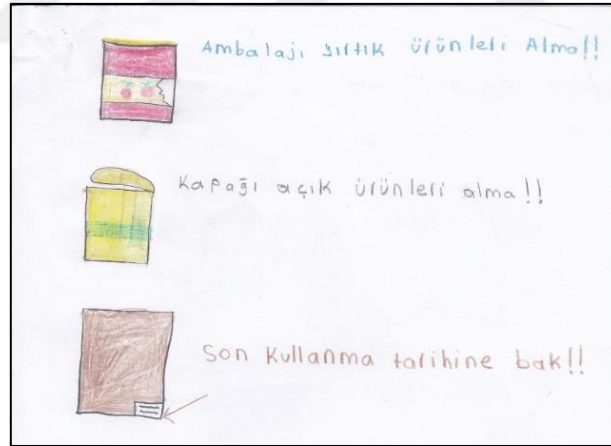 Ambalajı yırtık ürünleri Alma!!
Kapağı açık ürünleri alma!!
Son kullanma tarihine bak!!